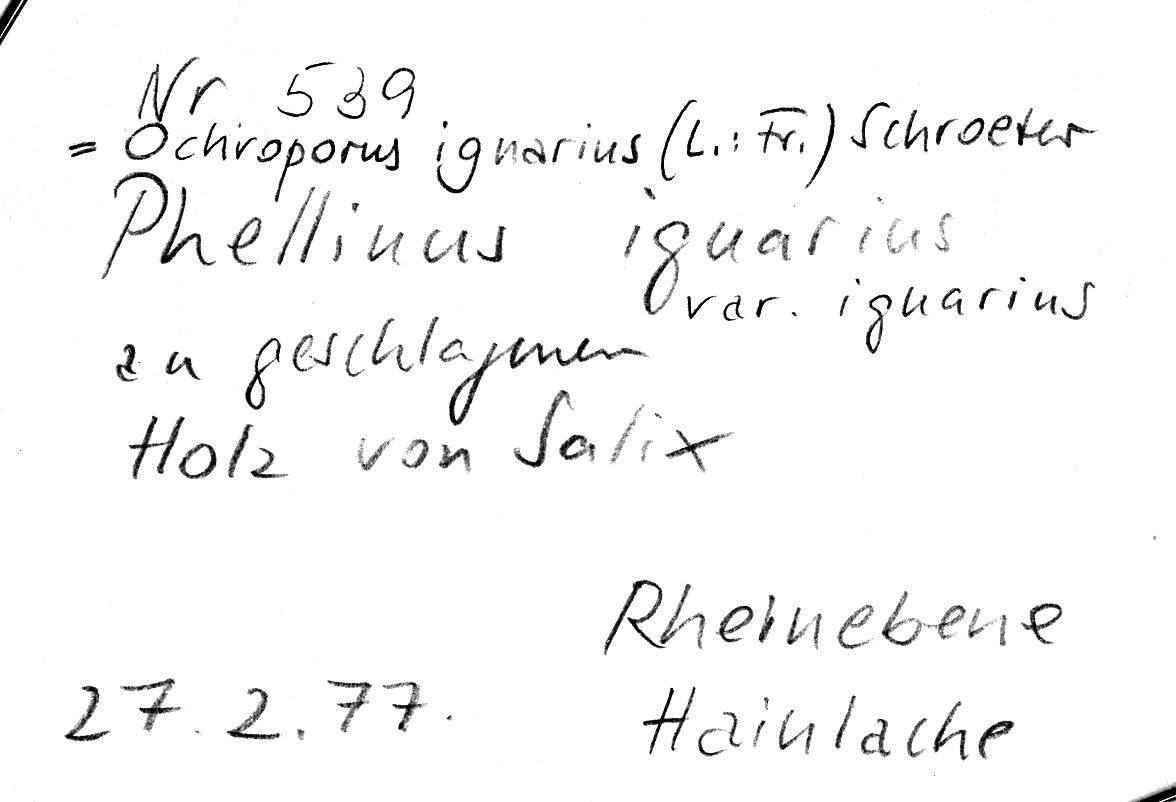 Nr 539
= Ochroporus ignarius (L.: Fr.) Schroeter
Phellinus ignarius
var. ignarius
an geschlagenem
Holz von Salix
Rheinebene
27.2.77.
Hainlache